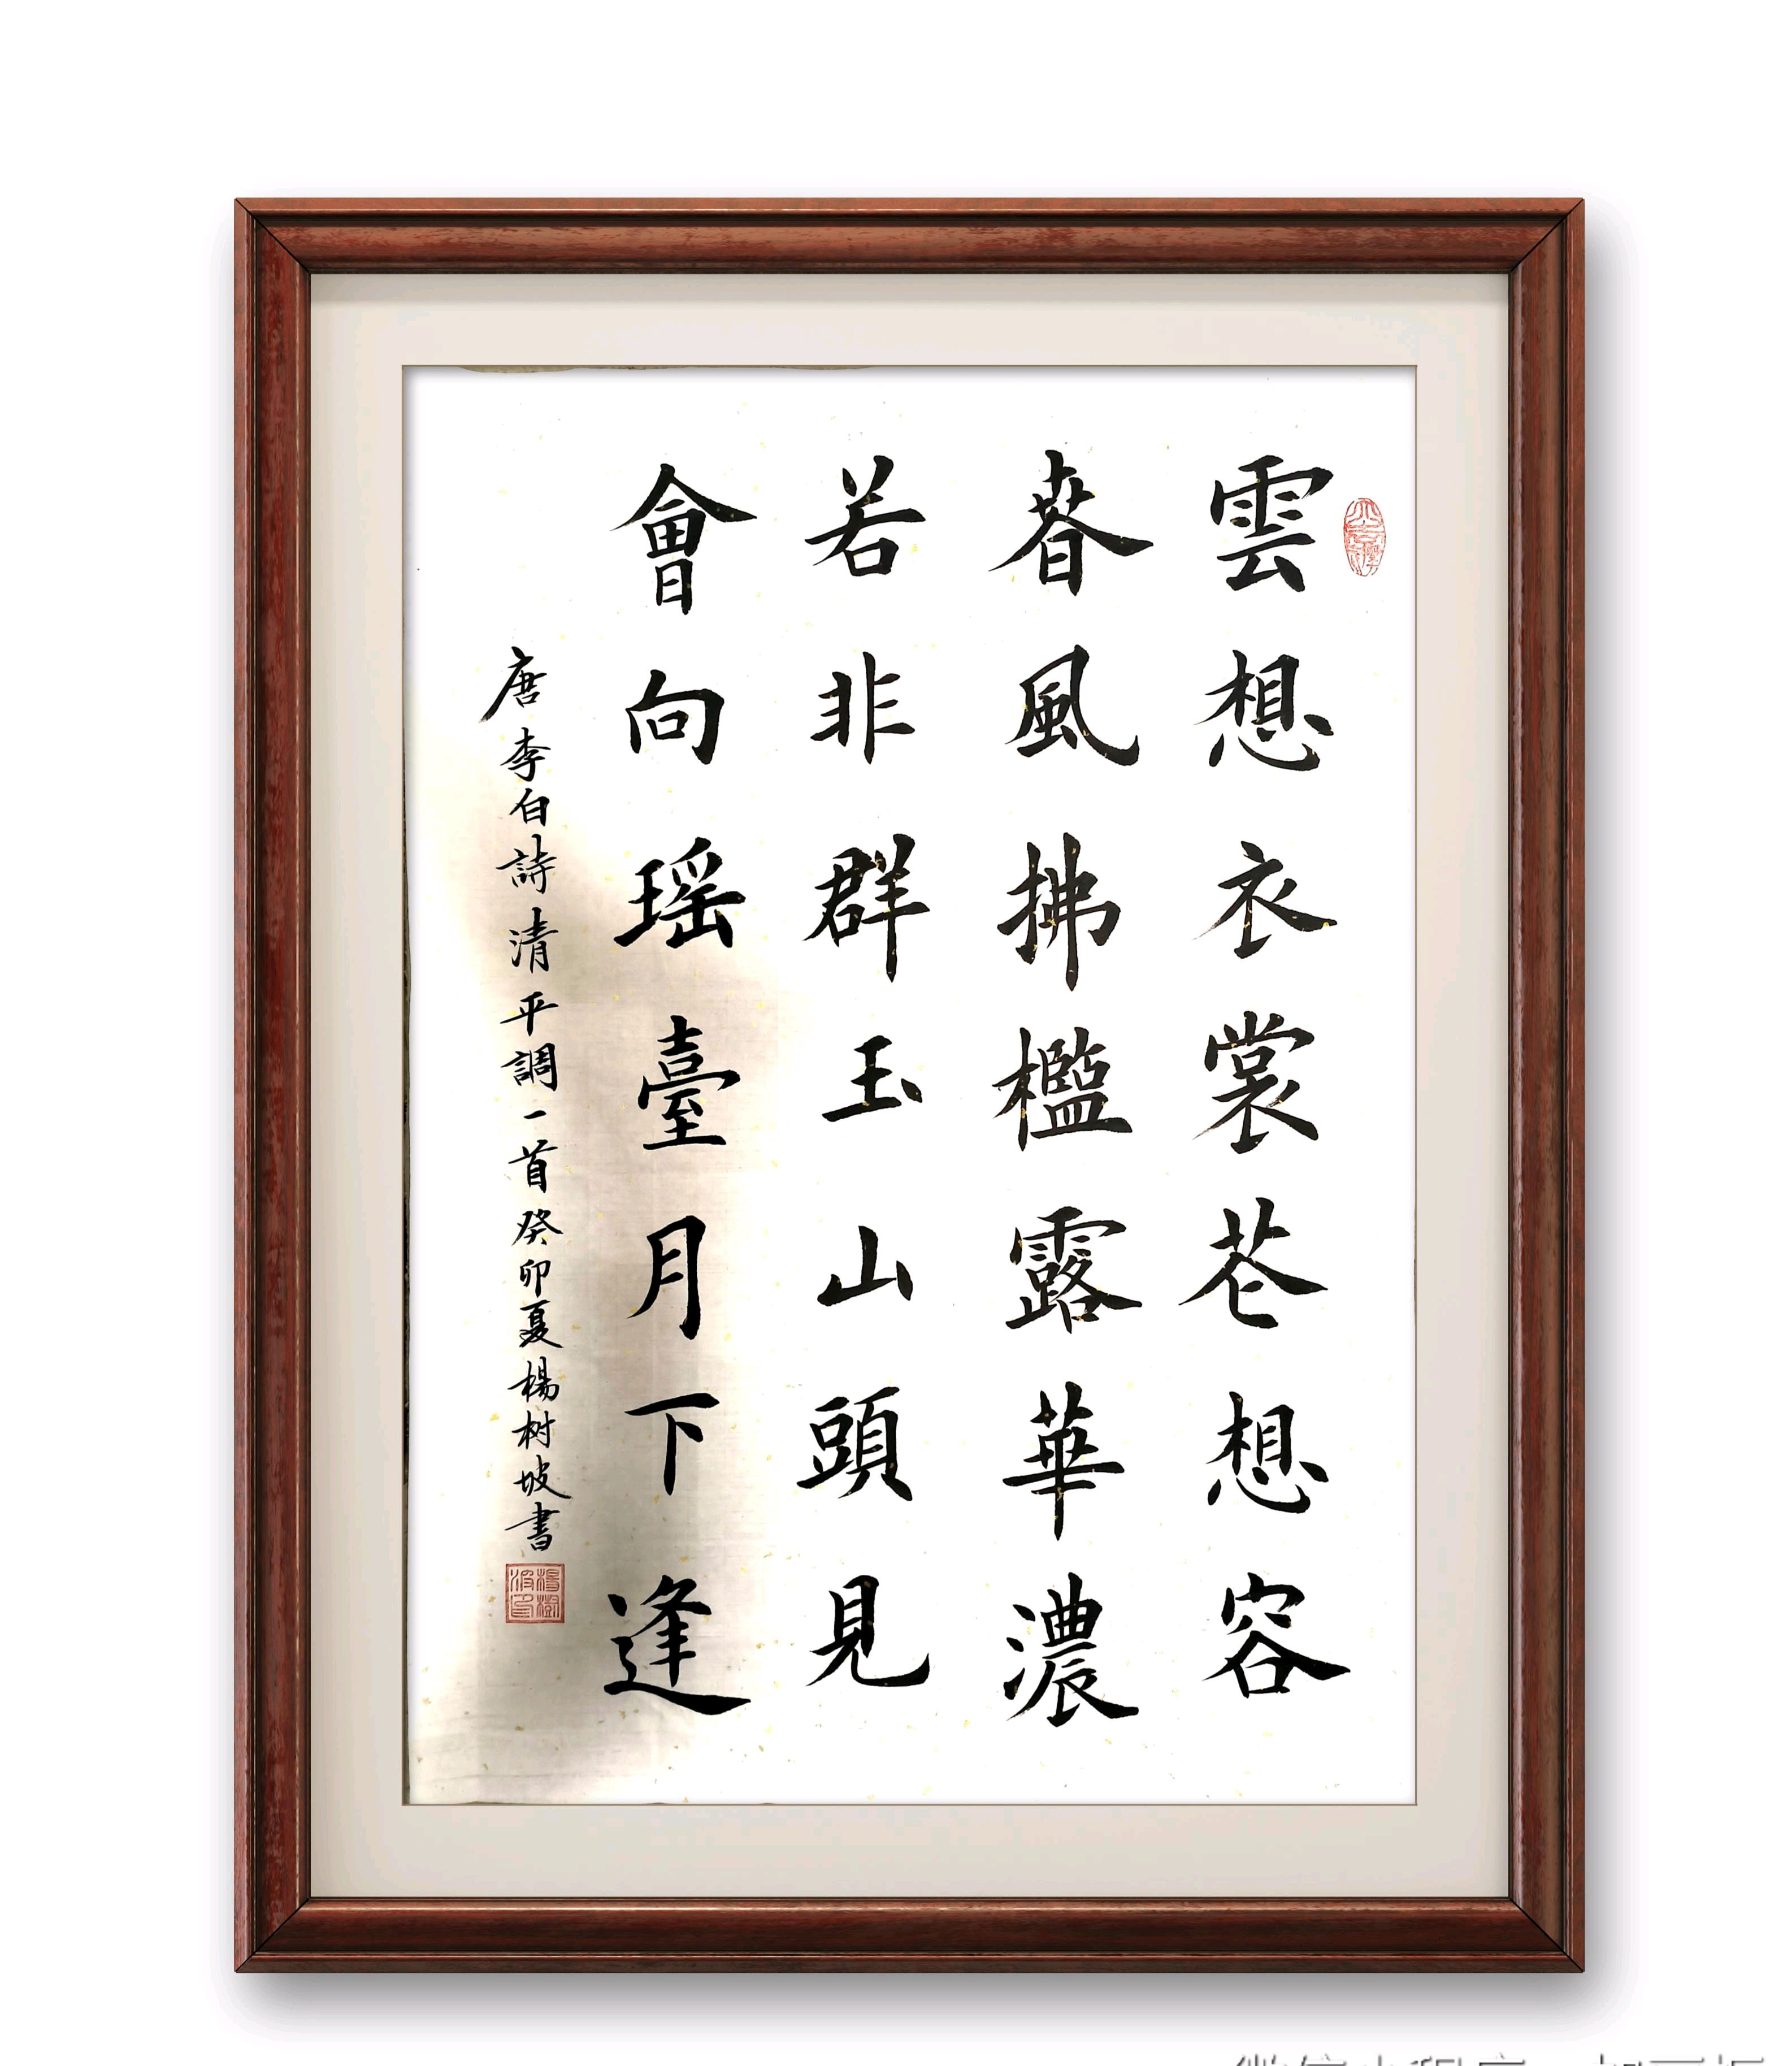 雲想衣裳花想容
春風拂檻露華濃
若非群玉山頭見
會向瑶臺月下逢
唐李白詩清平調一首癸卯夏楊树坡書
楊樹坡印